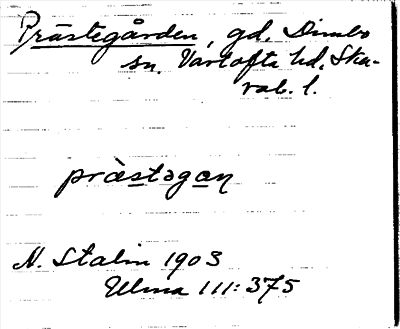 Prästegården, gd. Dimbo
sn. Vartofta hd. Ska-
rab. l.
prästagan
N. Stalin 1903
Ulma 111:375